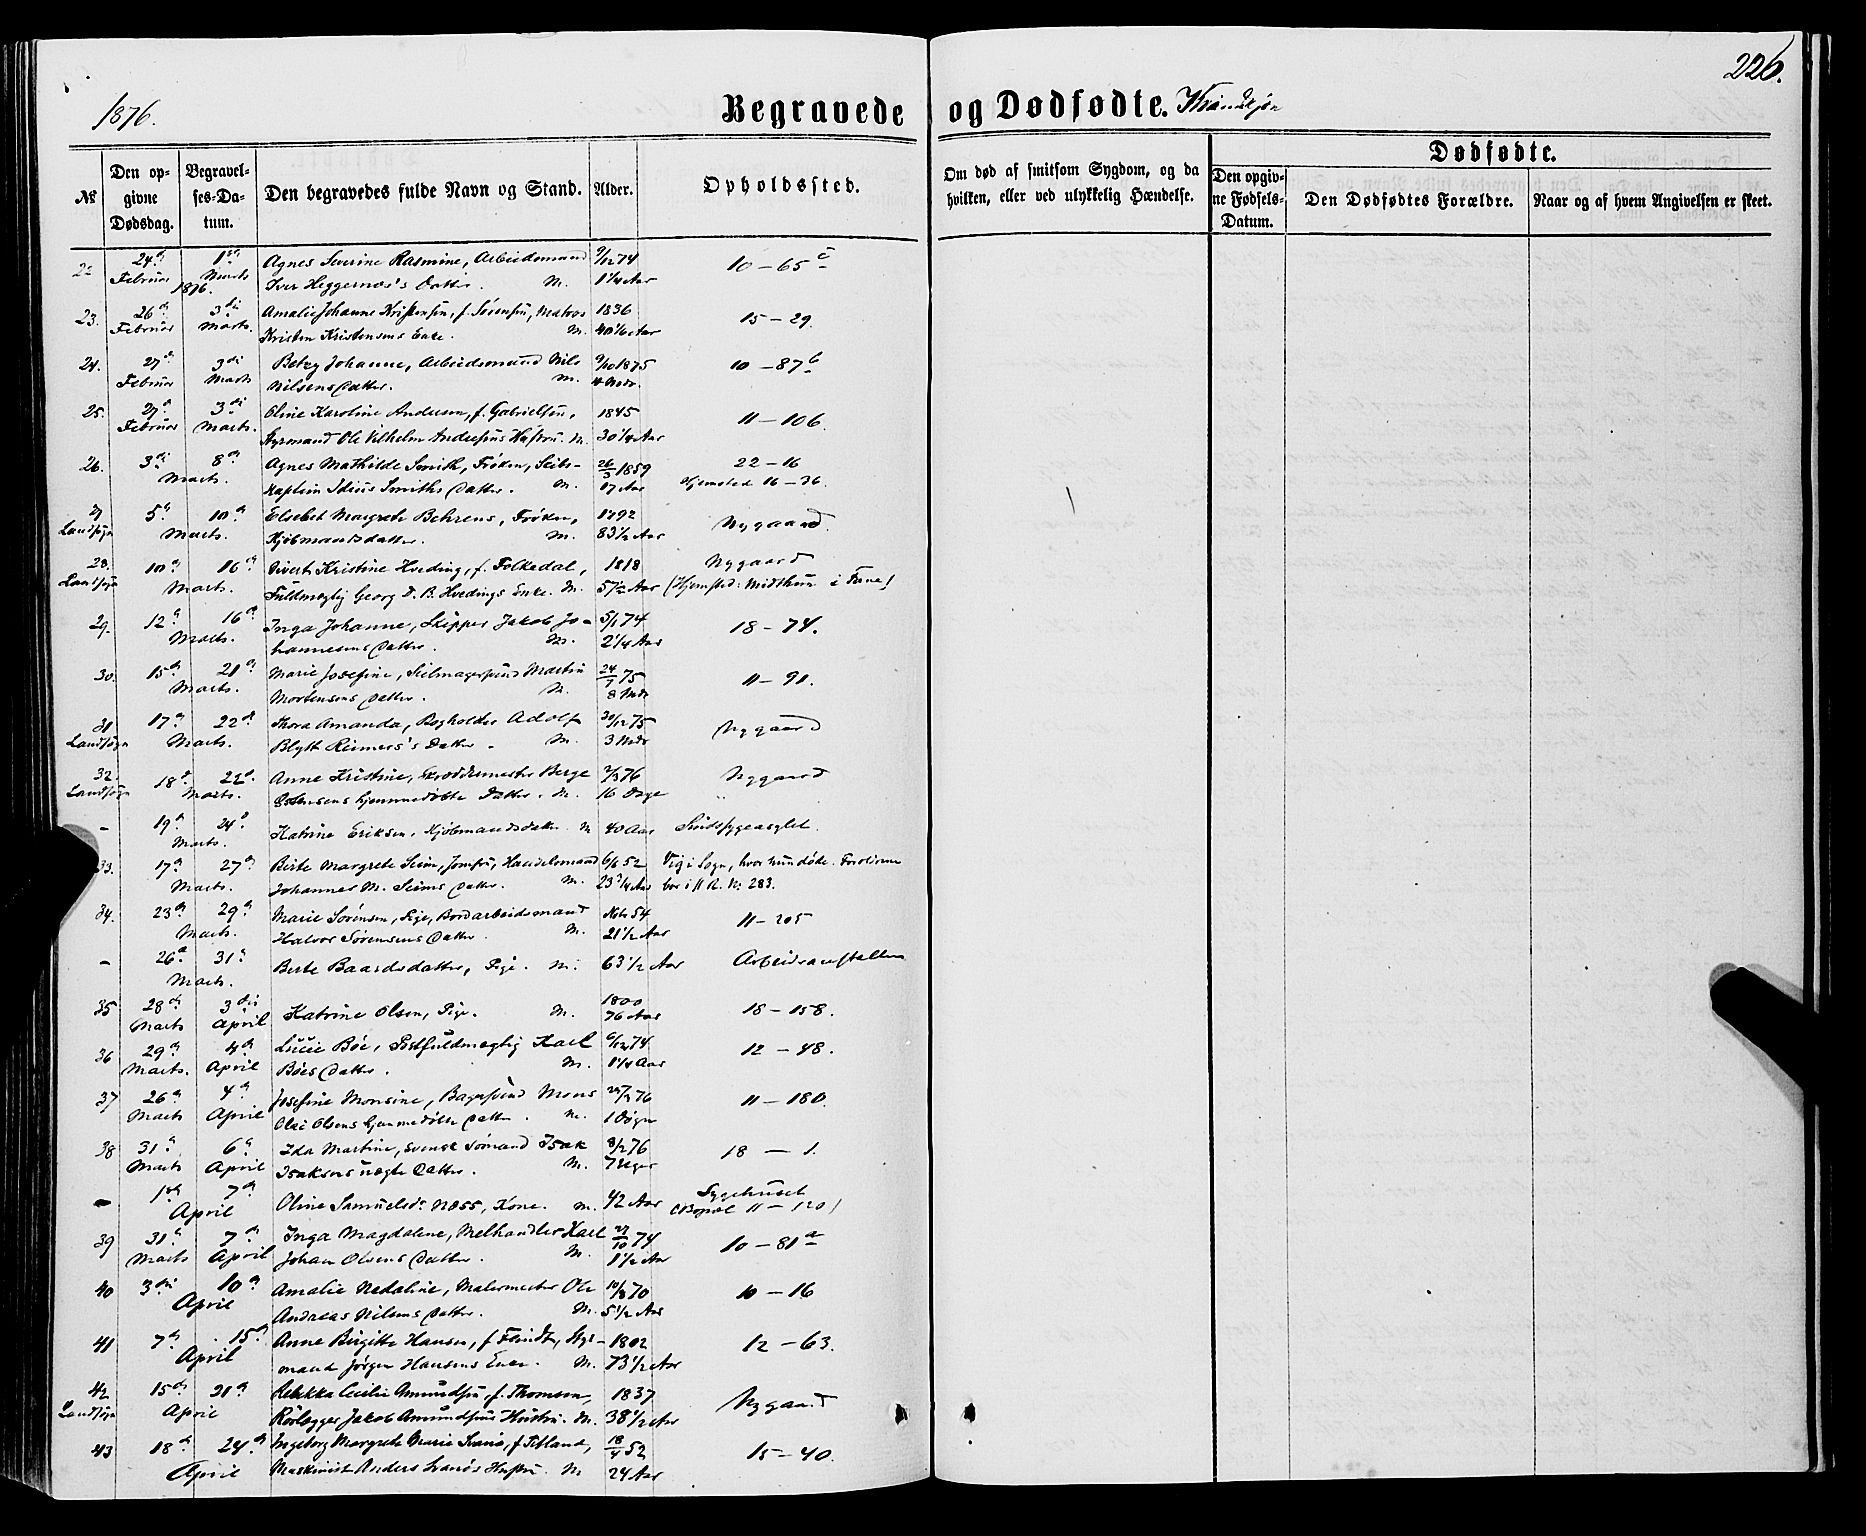 226.
1876.
Begravede og Dødfødte. Kvindekjøn
№
Den opgivne Dødsdag.
Begravelses-Datum.
Den begravedes fulde Navn og Stand.
Alder.
Opholdssted.
Om død af smitsom Sygdom, og da hvilken, eller ved ulykkelig Hændelse.
Dødfødte.
Den opgivne Fødsels-Datum.
Den Dødfødtes Forældre.
Naar og af hvem Angivelsen er skeet.
24de 1ste Agnes Severine Rasmine, Arbeidsmand 9/12 74 10 – 65 c
Februar Marts 1876. Iver Heggernæs's Datter. M. 1 1/4 Aar
23. 26de 3die Amalie Johanne Kristensen, f. Sørensen, Matros 1836 15 – 29.
Februar Marts. Kristen Kristensens Enke. M. 40 1/6 Aar
24. 27de 3die Betzy Johanne, Arbeidsmand Nils 9/10 1875 10 – 87 b
Februar Marts Nilsens Datter. M. 4 Mdr.
25. 27de 3die Oline Karoline Andersen, f. Gabrielsen, 1845 11 – 106.
Februar Marts. Styrmand Ole Vilhelm Andersens Hustru. M. 30 1/4 Aar
26. 3die 8de Agnes Mathilde Smith, Frøken, Skibs- 26/3 1859 22 – 16
Marts. Kaptein Idius Smiths Datter. M. 17 Aar Hjemsted 16 – 36.
27 5te 10de Elsebet Margrete Behrens, Frøken, 1792 Nygaard.
Landsogn Marts. Kjøbmandsdatter. M. 83 1/2 Aar
28. 10de 16de Sivert Kristine Hveding, f. Folkedal, 1818 Nygaard
Landsogn Marts. Fuldmægtig Georg D. B. Hvedings Enke. M. 57 1/2 Aar (Hjemsted: Midthun i Fane)
29. 12te 16de Inga Johanne, Skipper Jakob Jo- 5/1 74 18 – 74.
Marts. hannesens Datter. M. 2 1/4 Aar
30. 15de 21de Marie Josefine, Seilmagersvend Martin 24/7 75 11 – 91.
Marts. Mortensens Datter. M. 8 Mdr
31 17de 22de Thora Amanda, Bogholder Adolf 30/12 75 Nygaard
Landsogn Marts. Blytt Reimers's Datter. M. 3 Mdr
32. 18de 22de Anne Kristine, Skræddermester Berge 2/3 76 Nygaard
Landsogn Marts. Østensens hjemmedøbte Datter. M. 16 Dage
– 19de 24de Katrine Eriksen, Kjøbmandsdatter. M 40 Aar Sindssygeasylet.
Marts.
33. 17de 27de Berte Margrete Seim, Jomfru, Handelsmand 6/6 52 Vig i Sogn, hvor hun døde. Forældrene
Marts. Johannes M. Seims Datter. M. 23 3/4 Aar bor i 11 R. No. 283.
34. 23de 29de Marie Sørensen, Pige, Bordarbeidsmand Nobr 54 11 – 205
Marts. Halvor Sørensens Datter. M. 21 1/2 Aar
– 26de 31te Berte Baardsdatter, Pige. M. 63 1/2 Aar Arbeidsanstalten
Marts.
35 28de 3die Katrine Olsen, Pige. M. 1800 18 – 158.
Marts April 76 Aar
36 29de 4de Lucie Bøe, Postfuldmægtig Karl 6/12 74 12 – 48.
Marts. April Bøes Datter. M. 1 1/4 Aar
37 26de 4de Josefine Monsine, Bagersvend Mons 24/3 76 11 – 180.
Marts April Olai Olsens hjemmedøbte Datter. M. 1 Døgn
38 31te 6te Ida Martine, svensk Sømand Isak 8/2 76 18 – 1.
Marts April Isaksens uægte Datter. M. 7 Uger
– 1ste 7de Oline Samuelsdr Næss, Kone. M. 42 Aar Sygehuset
April (Bopæl 11 – 120)
39 31te 7de Inga Magdalene, Melhandler Karl 27/10 74 10 – 81 a
Marts April Johan Olsens Datter. M. 1 1/2 Aar
40 3die 10de Amalie Nedaline, Malermester Ole 10/8 70 10 – 16
April Andreas Nilsens Datter. M. 5 1/2 Aar
41 7de 15de Anne Birgitte Hansen, f Flindt, Styr- 1802 12 – 63.
April mand Jørgen Hansens Enke. M. 73 1/2 Aar
42 15de 21de Rebekka Cecilie Amundsen, f. Thomsen, 1837 Nygaard
Landsogn April Rørlægger Jakob Amundsens Hustru. M. 38 1/2 Aar
43 18de 24de Ingeborg Margrete Marie Svanø, f Tetland, 18/4 52 15 – 40.
April Maskinist Anders Svanøs Hustru. M 24 Aar